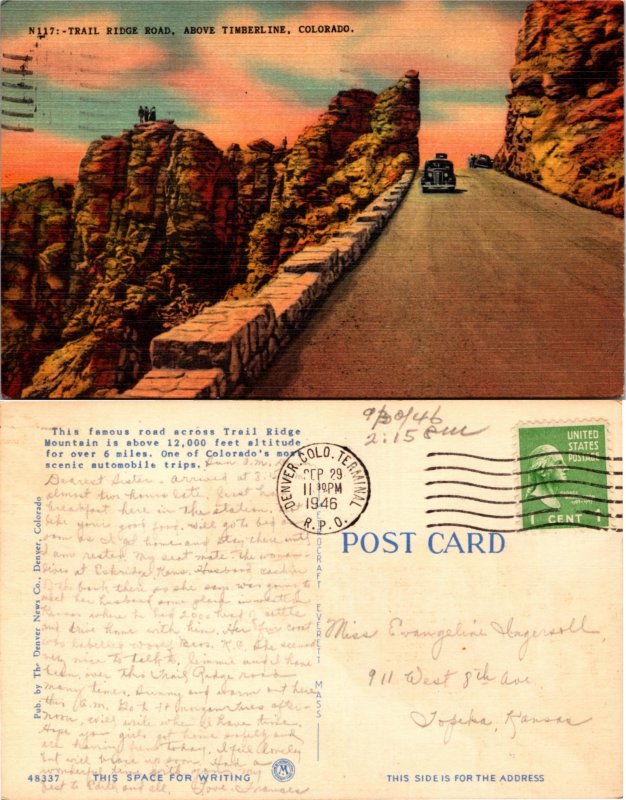 N117:-TRAIL RIDGE ROAD, ABOVE TIMBERLINE, COLORADO.
This famous road across Trail Ridge
Mountain is above 12,000 feet altitude
for over 6 miles. One of Colorado's most
scenic automobile trips.
Sun A.M.
Dearest Sister. Arrived at 8:
almost two hours late. Just had
breakfast here in the station. Not
like your good food. Will go to bed as
soon as I get home and stay there until
I am rested. My seat mate the woman
lives at Eskridge Kans. Husband cashier
of the bank there so she says. was going to
meet her husband some place in western
Kansas where he had 2000 head of cattle
and drive home with him. Her fur coat
was labelled Woolf Bros. K.C. She seemed
very nice to talk to. Jimmie and I have
been over this Trail Ridge road
many times. Sunny and warm out here
this A.M. Go to Ft Morgan Tues after-
noon, will write when I have time.
Hope your girls got home safely and
are having fun today. I feel lonely
but will brace up soon. Had a
wonderful time with you. My
best to Earl and all. Love. Frances
Pub. by The Denver News Co., Denver, Colorado
48337
THIS SPACE FOR WRITING
EVERETT MASS
9/30/46
2:15 PM
DENVER, COLO. TERMINAL
SEP 29
11 PM
1946
R.P.O.
UNITED
STATES
POSTAGE
1 CENT 1
POST CARD
Miss Evangeline Ingersoll,
911 West 8th Ave
Topeka, Kansas
THIS SIDE IS FOR THE ADDRESS